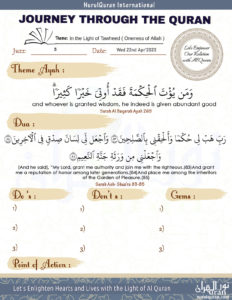 NurulQuran International
JOURNEY THROUGH THE QURAN
Theme: In the Light of Tawheed ( Oneness of Allah )
Juzz: 3 Date: Wed 22nd Apr'2020
Let's Empower
Our Relation
with Al Quran
Theme Ayah :
وَمَن يُؤْتَ الْحِكْمَةَ فَقَدْ أُوتِيَ خَيْرًا كَثِيرًا
and whoever is granted wisdom, he indeed is given abundant good
Surah Al Baqarah Ayah 269
Dua :
رَبِّ هَبْ لِي حُكْمًا وَأَلْحِقْنِي بِالصَّالِحِينَ وَاجْعَل لِّي لِسَانَ صِدْقٍ فِي الْآخِرِينَ
وَاجْعَلْنِي مِن وَرَثَةِ جَنَّةِ النَّعِيمِ
(And he said), "My Lord, grant me authority and join me with the righteous.(83)And grant
me a reputation of honor among later generations,(84)And place me among the inheritors
of the Garden of Pleasure.(85)
Surah Ash-Shua'ra 83-85
Do 's : Don't s : Gems :
1) 1) 1)
2) 2) 2)
3) 3) 3)
Point of Action :
Let's Enlighten Hearts and Lives with the Light of Al Quran
نور القرآن